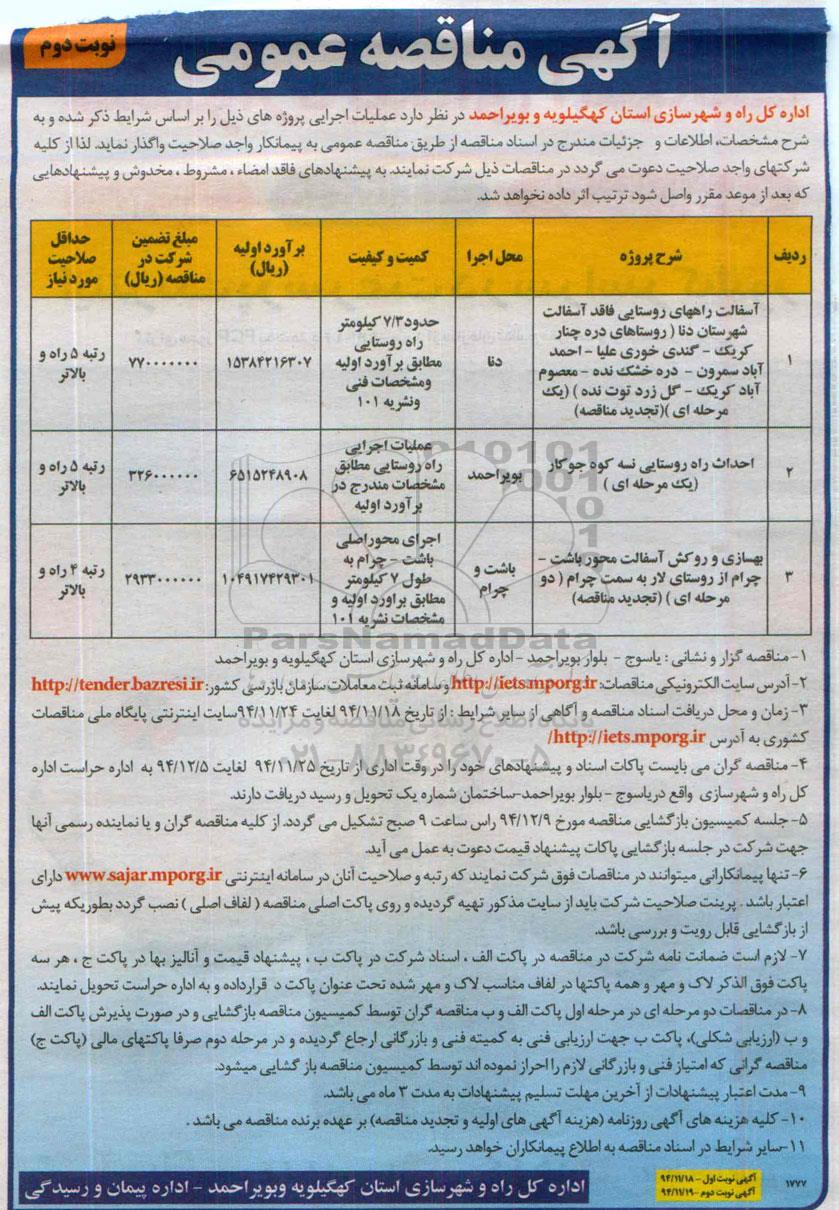 آگهی مناقصه عمومی
نوبت دوم
اداره کل راه و شهرسازی استان کهگیلویه و بویراحمد در نظر دارد عملیات اجرایی پروژه های ذیل را بر اساس شرایط ذکر شده و به
شرح مشخصات، اطلاعات و جزئیات مندرج در اسناد مناقصه از طریق مناقصه عمومی به پیمانکار واجد صلاحیت واگذار نماید. لذا از کلیه
شرکتهای واجد صلاحیت دعوت می گردد در مناقصات ذیل شرکت نمایند. به پیشنهادهای فاقد امضاء ، مشروط ، مخدوش و پیشنهادهایی
که بعد از موعد مقرر واصل شود ترتیب اثر داده نخواهد شد.
ردیف
شرح پروژه
محل اجرا
کمیت و کیفیت
برآورد اولیه
(ریال)
مبلغ تضمین
شرکت در
مناقصه (ریال)
حداقل
صلاحیت
مورد نیاز
۱
آسفالت راههای روستایی فاقد آسفالت
شهرستان دنا ( روستاهای دره چنار
کریک - گندی خوری علیا - احمد
آباد سمرون - دره خشک نده - معصوم
آباد کریک - گل زرد توت نده ) (یک
مرحله ای )(تجدید مناقصه)
دنا
حدود ۷/۳ کیلومتر
راه روستایی
مطابق برآورد اولیه
ومشخصات فنی
ونشریه ۱۰۱
۱۵۳۸۴۲۱۶۳۰۷
۷۷۰۰۰۰۰۰۰
رتبه ۵ راه و
بالاتر
۲
احداث راه روستایی نسه کوه جوکار
(یک مرحله ای )
بویراحمد
عملیات اجرایی
راه روستایی مطابق
مشخصات مندرج در
برآورد اولیه
۶۵۱۵۲۴۸۹۰۸
۳۲۶۰۰۰۰۰۰
رتبه ۵ راه و
بالاتر
۳
بهسازی و روکش آسفالت محور باشت -
چرام از روستای لار به سمت چرام ( دو
مرحله ای ) (تجدید مناقصه)
باشت و
چرام
اجرای محوراصلی
باشت - چرام به
طول ۷ کیلومتر
مطابق براورد اولیه و
مشخصات نشریه ۱۰۱
۱۰۴۹۱۷۴۲۹۳۰۱
۲۹۳۳۰۰۰۰۰۰
رتبه ۴ راه و
بالاتر
ParsNamadData
۱- مناقصه گزار و نشانی : یاسوج - بلوار بویراحمد - اداره کل راه و شهرسازی استان کهگیلویه و بویراحمد
۲- آدرس سایت الکترونیکی مناقصات: http://iets.mporg.ir و سامانه ثبت معاملات سازمان بازرسی کشور: http://tender.bazresi.ir
۳- زمان و محل دریافت اسناد مناقصه و آگاهی از سایر شرایط : از تاریخ ۹۴/۱۱/۱۸ لغایت ۹۴/۱۱/۲۴سایت اینترنتی پایگاه ملی مناقصات
کشوری به آدرس http://iets.mporg.ir/
پایگاه اطلاع رسانی مناقصه و مزایده
۰۲۱-۸۸۳۴۹۶۷۰-۵
۴- مناقصه گران می بایست پاکات اسناد و پیشنهادهای خود را در وقت اداری از تاریخ ۹۴/۱۱/۲۵ لغایت ۹۴/۱۲/۵ به اداره حراست اداره
کل راه و شهرسازی واقع دریاسوج - بلوار بویراحمد-ساختمان شماره یک تحویل و رسید دریافت دارند.
۵- جلسه کمیسیون بازگشایی مناقصه مورخ ۹۴/۱۲/۹ راس ساعت ۹ صبح تشکیل می گردد. از کلیه مناقصه گران و یا نماینده رسمی آنها
جهت شرکت در جلسه بازگشایی پاکات پیشنهاد قیمت دعوت به عمل می آید.
۶- تنها پیمانکارانی میتوانند در مناقصات فوق شرکت نمایند که رتبه و صلاحیت آنان در سامانه اینترنتی www.sajar.mporg.ir دارای
اعتبار باشد . پرینت صلاحیت شرکت باید از سایت مذکور تهیه گردیده و روی پاکت اصلی مناقصه ( لفاف اصلی ) نصب گردد بطوریکه پیش
از بازگشایی قابل رویت و بررسی باشد.
۷- لازم است ضمانت نامه شرکت در مناقصه در پاکت الف ، اسناد شرکت در پاکت ب ، پیشنهاد قیمت و آنالیز بها در پاکت ج ، هر سه
پاکت فوق الذکر لاک و مهر و همه پاکتها در لفاف مناسب لاک و مهر شده تحت عنوان پاکت د قرارداده و به اداره حراست تحویل نمایند.
۸- در مناقصات دو مرحله ای در مرحله اول پاکت الف و ب مناقصه گران توسط کمیسیون مناقصه بازگشایی و در صورت پذیرش پاکت الف
و ب (ارزیابی شکلی)، پاکت ب جهت ارزیابی فنی به کمیته فنی و بازرگانی ارجاع گردیده و در مرحله دوم صرفا پاکتهای مالی (پاکت ج)
مناقصه گرانی که امتیاز فنی و بازرگانی لازم را احراز نموده اند توسط کمیسیون مناقصه باز گشایی میشود.
۹- مدت اعتبار پیشنهادات از آخرین مهلت تسلیم پیشنهادات به مدت ۳ ماه می باشد.
۱۰- کلیه هزینه های آگهی روزنامه (هزینه آگهی های اولیه و تجدید مناقصه) بر عهده برنده مناقصه می باشد .
۱۱-سایر شرایط در اسناد مناقصه به اطلاع پیمانکاران خواهد رسید.
۱۷۷۷
آگهی نوبت اول - ۹۴/۱۱/۱۸
آگهی نوبت دوم - ۹۴/۱۱/۱۹
اداره کل راه و شهرسازی استان کهگیلویه وبویراحمد - اداره پیمان و رسیدگی